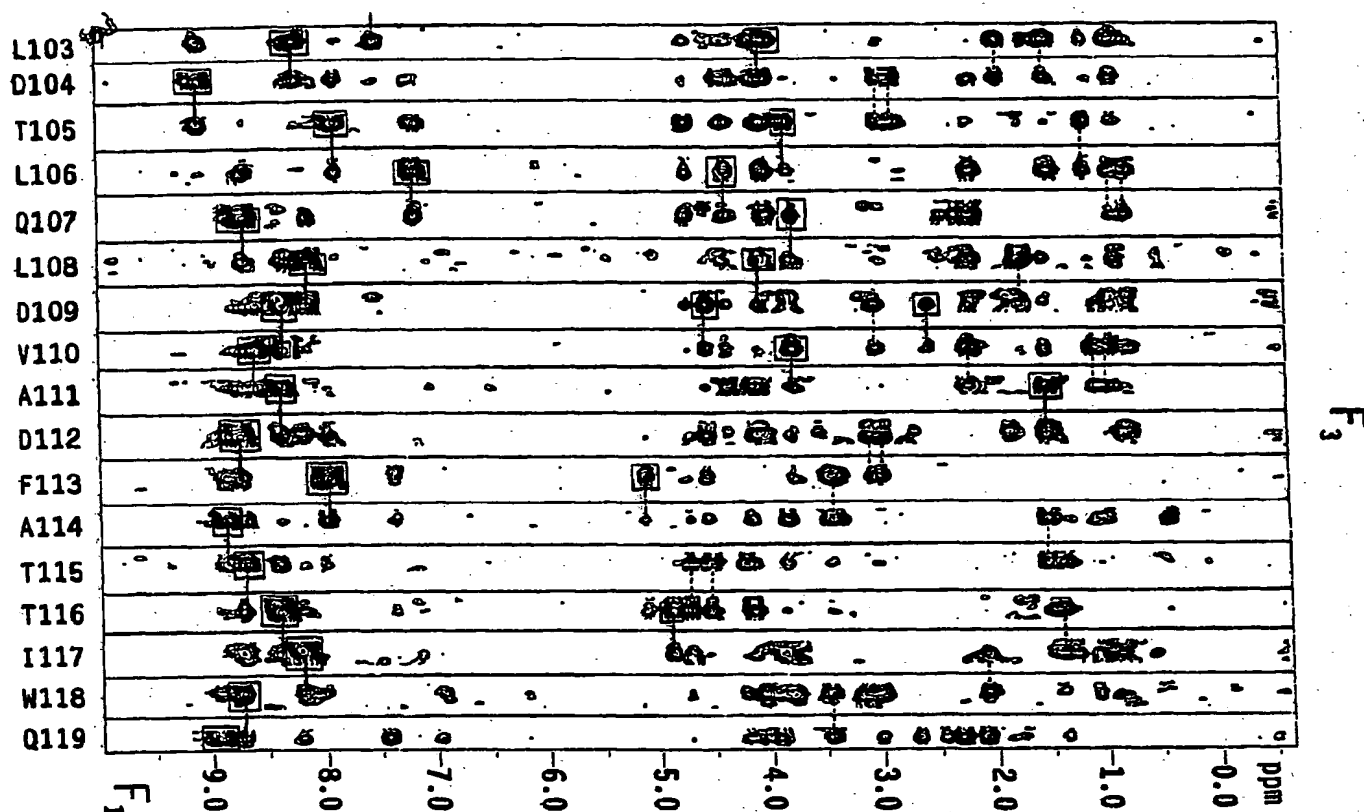 L103
D104
T105
L106
Q107
L108
D109
V110
A111
D112
F113
A114
T115
T116
I117
W118
Q119
F3
9.0
8.0
7.0
6.0
5.0
4.0
3.0
2.0
1.0
0.0
ppm
F1